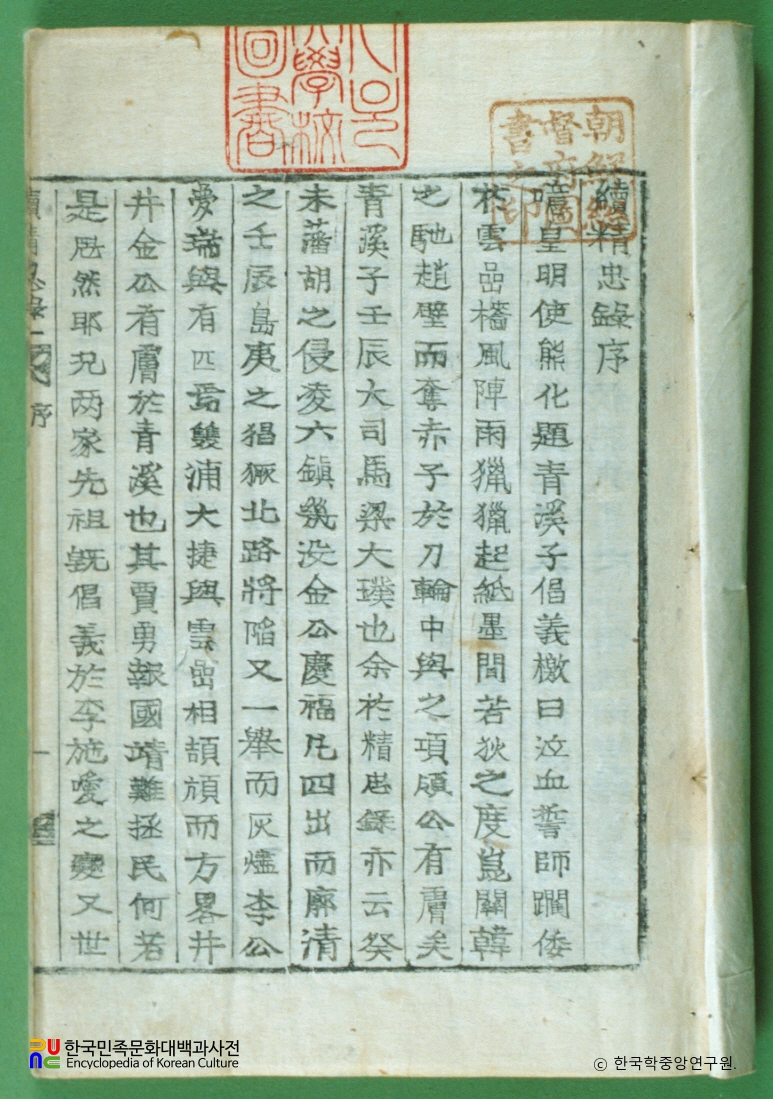 續精忠錄序
皇明使熊化題靑溪子倡義檄曰泣血誓師躙倭
於雲嵒檣風陣雨獵獵起紙墨間若狄之度崑關韓
之馳趙壁而奪赤子於刀輪中與之項頎公有膚矣
靑溪子壬辰大司馬梁大璞也余於精忠錄亦云癸
未藩胡之侵凌六鎭幾沒金公慶福凡四出而廓淸
之壬辰島夷之猖獗北路將陷又一擧而灰燼李公
愛瑞與有匹焉雙浦大捷與雲嵒相頡頏而方畧井
井金公有膚於靑溪也其賈勇報國靖難拯民何若
是旣然耶况兩家先祖旣倡義於李施愛之變又世
續精忠錄一 序
一
朝鮮總
督府圖
書之印
學校
圖書
한국민족문화대백과사전
Encyclopedia of Korean Culture
© 한국학중앙연구원.